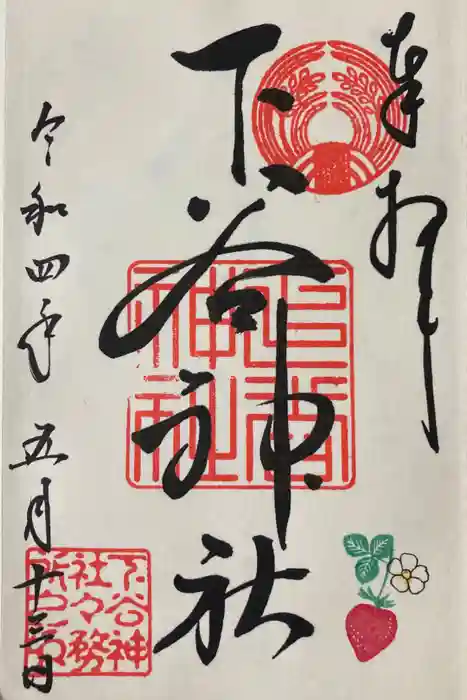 奉拝
下谷神社
令和四年 五月十三日
下谷神
社々務
所之印